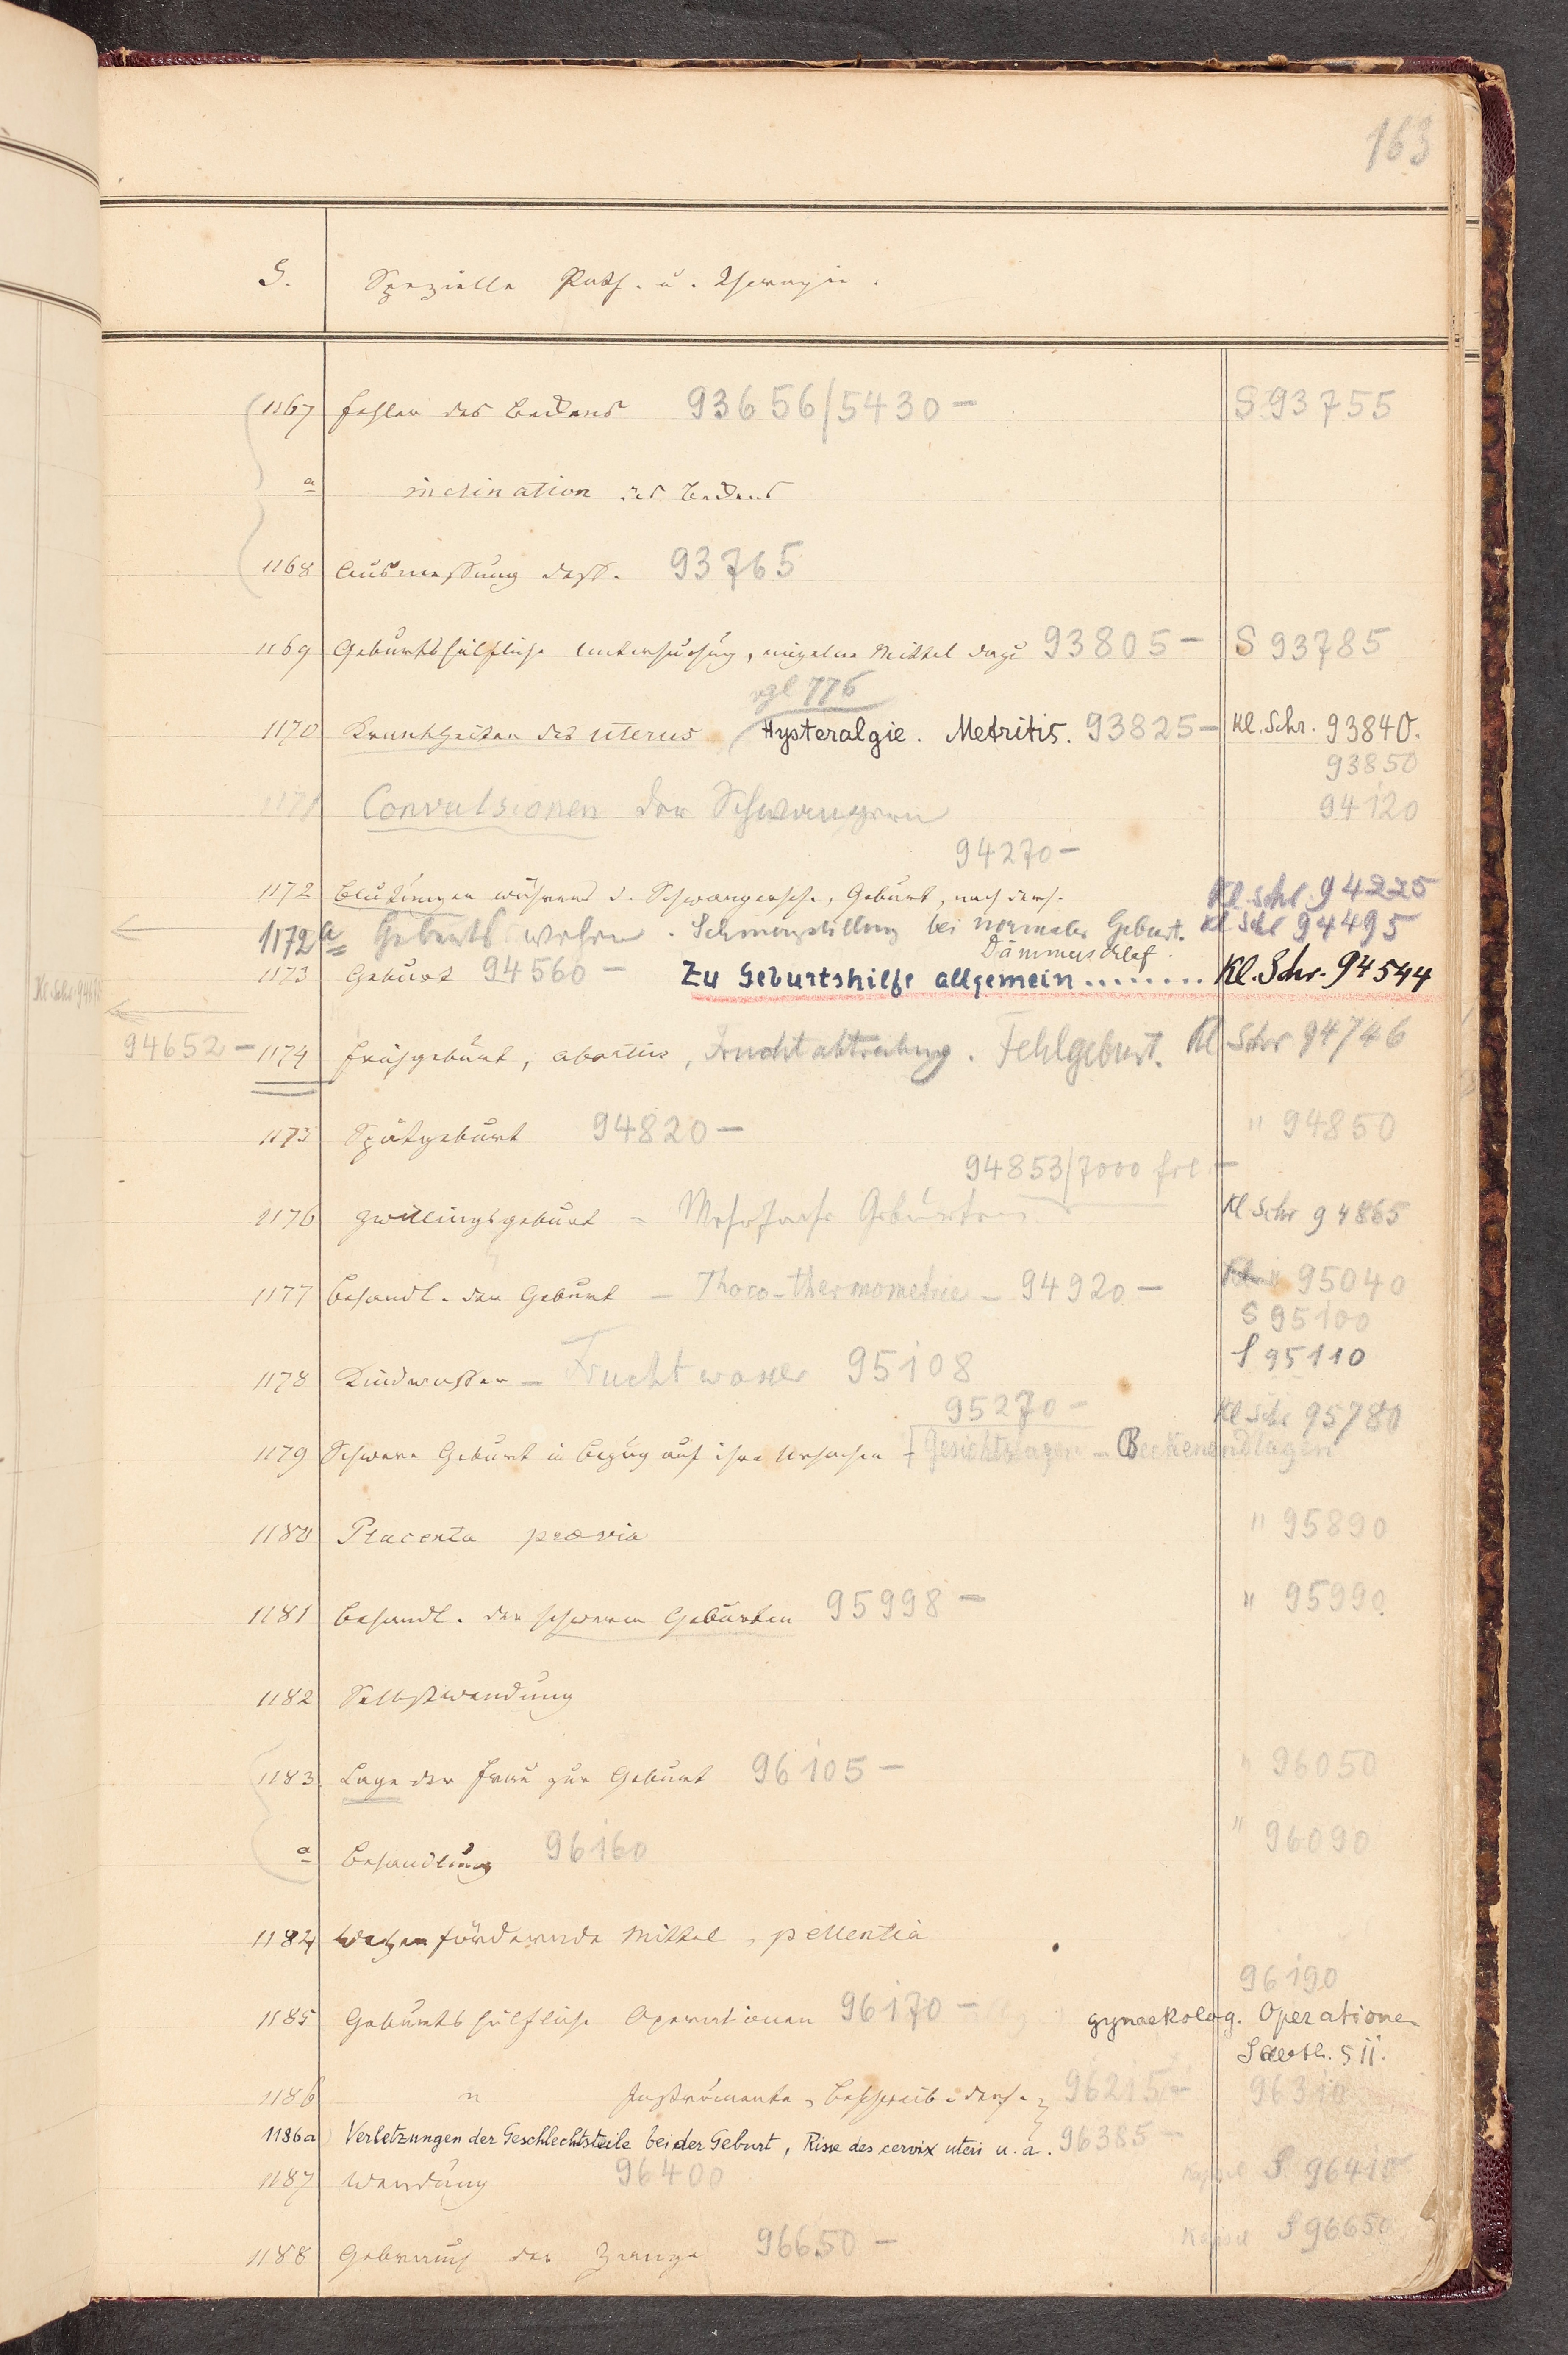 163
S. Spezielle Path. u. Therapie.
1167 Fehler des Beckens 93656/5430 – S 93755
a inclination des Beckens
1168 Ausmessung dess. 93765
1169 Geburtshülfliche Untersuchung, einzelne Mittel dazu 93805 – S 93785
vgl 776
1170 Krankheiten des uterus Hysteralgie. Metritis. 93825 – Kl. Schr. 93840.
93850
1171 Convulsionen der Schwangern 94120
94270 –
1172 Blutungen während d. Schwangersch., Geburt, nach ders. Kl. Schr. 94225
1172a Geburtswehen. Schmerzstillung bei normaler Geburt. Kl Schr 94495
Dämmerschlaf.
1173 Geburt 94560 – Zu Geburtshilfe allgemein ........ Kl. Schr. 94544
94652 – 1174 Frühgeburt, abortus, Fruchtabtreibung. Fehlgeburt. Kl Schr 94746
1175 Spätgeburt 94820 – " 94850
94853/7000 frl. –
1176 Zwillingsgeburt – Mehrfache Geburten Kl Schr 94865
1177 Behandl. der Geburt – Thoco-thermometrie – 94920 – " 95040
S 95100
1178 Kindwasser – Fruchtwasser 95108 S 95110
95270 – Kl Schr 95780
1179 Schwere Geburt in Bezug auf ihre Ursachen Gesichtslagen – Beckenendlagen
1180 Placenta praevia " 95890
1181 Behandl. der schweren Geburten 95998 – " 95990
1182 Selbstwendung
1183 Lage der Frau zur Geburt 96105 – " 96050
a Behandlung 96160 " 96090
1184 Wehen fördernde Mittel, pellentia
96190
1185 Geburtshülfliche Operationen 96170 – gynaekolog. Operationen
S 11.
1186 " Instrumente, Beschreib. ders. 96215 – 96310
1186a Verletzungen der Geschlechtsteile bei der Geburt, Risse des cervix uteri u. a. 96385 –
1187 Wendung 96400 Kapsel S 96410
1188 Gebrauch der Zange 96650 – Kapsel S 96650